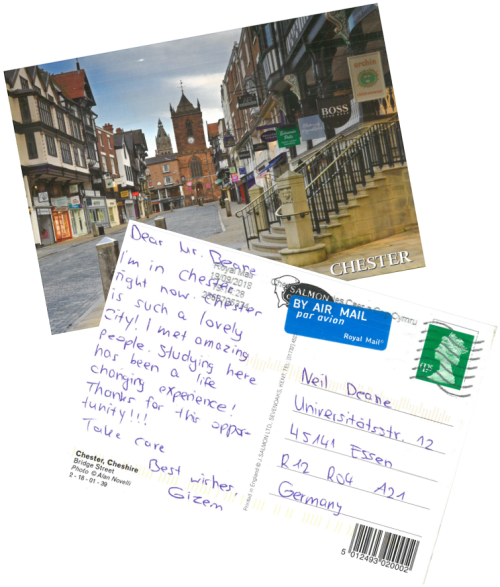 BOSS
CHESTER
Dear Mr. Deane
I'm in chester
right now. Chester
is such a lovely
City! I met amazing
people. Studying here
has been a life
changing experience!
Thanks for this oppor-
tunity!!!
Take care
Best wishes,
Gizem
Royal Mail
19/09/2018
Chester, Cheshire
Bridge Street
Photo © Alan Novelli
2 - 18 - 01 - 39
SALMON
BY AIR MAIL
par avion
Royal Mail®
Neil Deane
Universitätsstr. 12
45141 Essen
R12 R04 A21
Germany
Printed in England © J. SALMON LTD., SEVENOAKS, KENT. TEL.
5 012493 020002